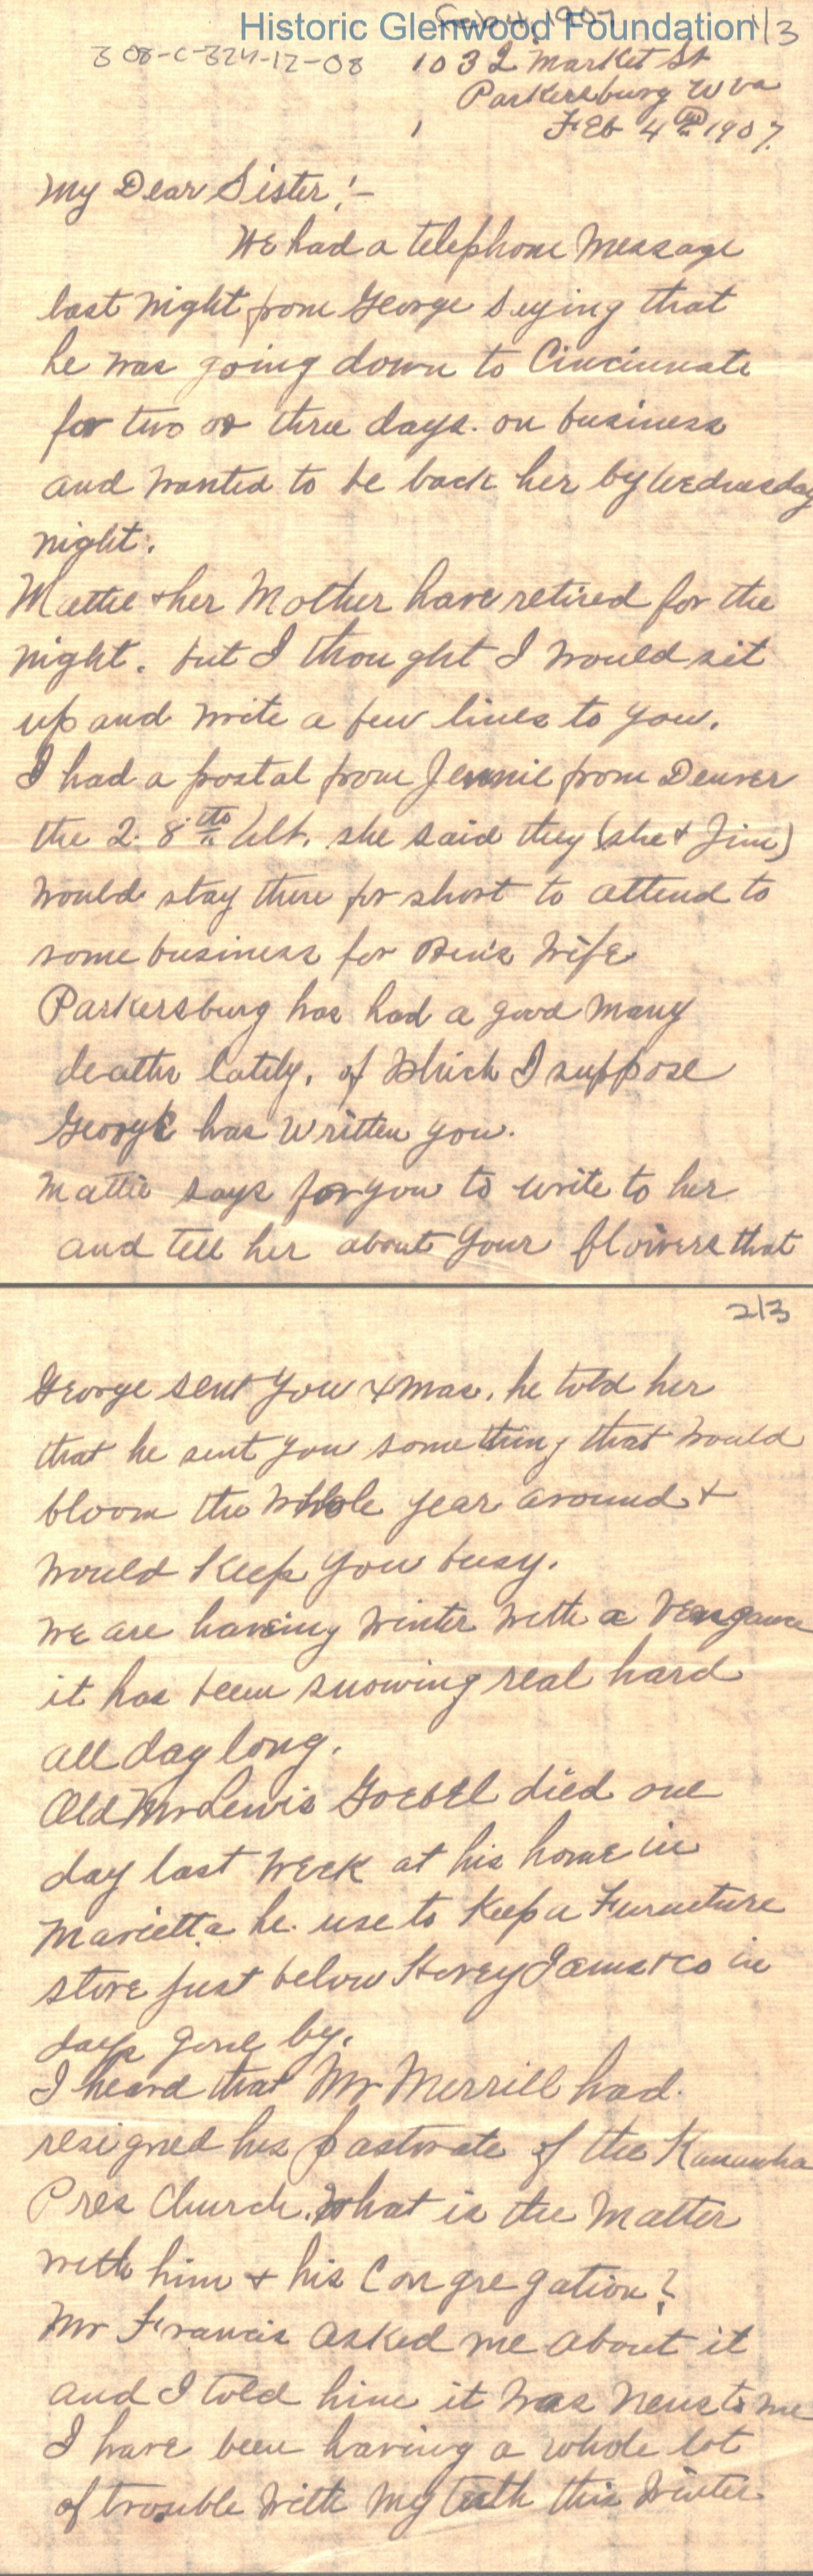 Feb 4, 1907
Historic Glenwood Foundation 1/3
308-C-324-12-08
1032 Market St
Parkersburg W va
1
Feb 4th 1907.
My Dear Sister,!-
We had a telephone Message
last night from George Seying that
he was going down to Cincinnati
for two or three days. on business
and wanted to be back her by Wednesday
night.
Mattie & her Mother have retired for the
night. but I thought I would sit
up and write a few lines to you.
I had a postal from Jennie from Denver
the 28th Ult. she said they (she & Jim)
would stay there for short to attend to
some business for Ben's Wife
Parkersburg has had a good many
deaths lately, of which I suppose
George has written you.
Mattie says for you to write to her
and tell her about your flowers that
2/3
George sent you Xmas, he told her
that he sent you something that would
bloom the whole year around &
would keep you busy.
We are having winter with a Vengance
it has been snowing real hard
all day long.
Old Mr Lewis Goebel died one
day last week at his home in
Marietta he use to keep a Furneture
store just below in
days gone by.
I heard that Mr Merrill had
resigned his pastorate of the Kanawha
Pres Church. What is the matter
with him & his Congregation?
Mr Francis asked me about it
and I told him it was news to me
I have been having a whole lot
of trouble with my teeth this winter.